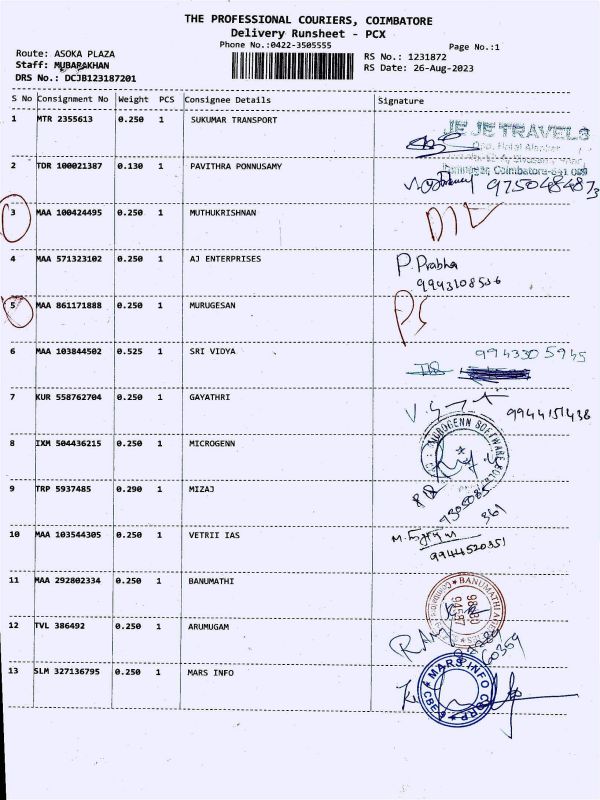 THE PROFESSIONAL COURIERS, COIMBATORE
Delivery Runsheet - PCX
Phone No.:0422-3505555
Page No.:1
Route: ASOKA PLAZA
Staff: MUBARAKHAN
DRS No.: DCJB123187201
RS No.: 1231872
RS Date: 26-Aug-2023
S No Consignment No Weight PCS Consignee Details Signature
1 MTR 2355613 0.250 1 SUKUMAR TRANSPORT
JE JE TRAVELS
Coimbatore-641 009
2 TDR 100021387 0.130 1 PAVITHRA PONNUSAMY
9750484873
3 MAA 100424495 0.250 1 MUTHUKRISHNAN
4 MAA 571323102 0.250 1 AJ ENTERPRISES P. Prabha
9943108506
5 MAA 861171888 0.250 1 MURUGESAN
6 MAA 103844502 0.525 1 SRI VIDYA 9943305945
7 KUR 558762704 0.250 1 GAYATHRI 9944151436
8 IXM 504436215 0.250 1 MICROGENN
MICROGENN SOFTWARE
9 TRP 5937485 0.290 1 MIZAJ
9305085
361
10 MAA 103544305 0.250 1 VETRII IAS
9944520351
11 MAA 292802334 0.250 1 BANUMATHI
BANUMATHI
12 TVL 386492 0.250 1 ARUMUGAM
60359
13 SLM 327136795 0.250 1 MARS INFO
MARS INFO CORP
CBE